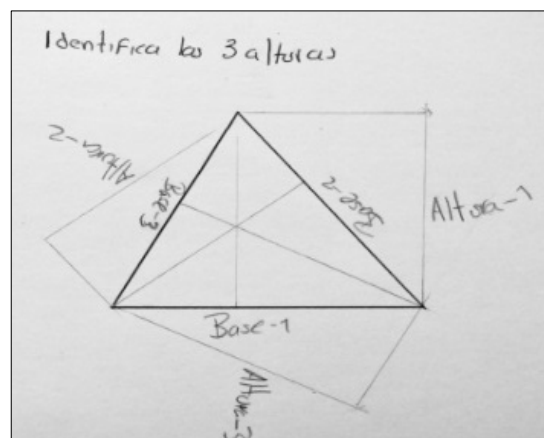 Identifica las 3 alturas
Altura-2
Base-3
Base-2
Altura-1
Base-1
Altura-3